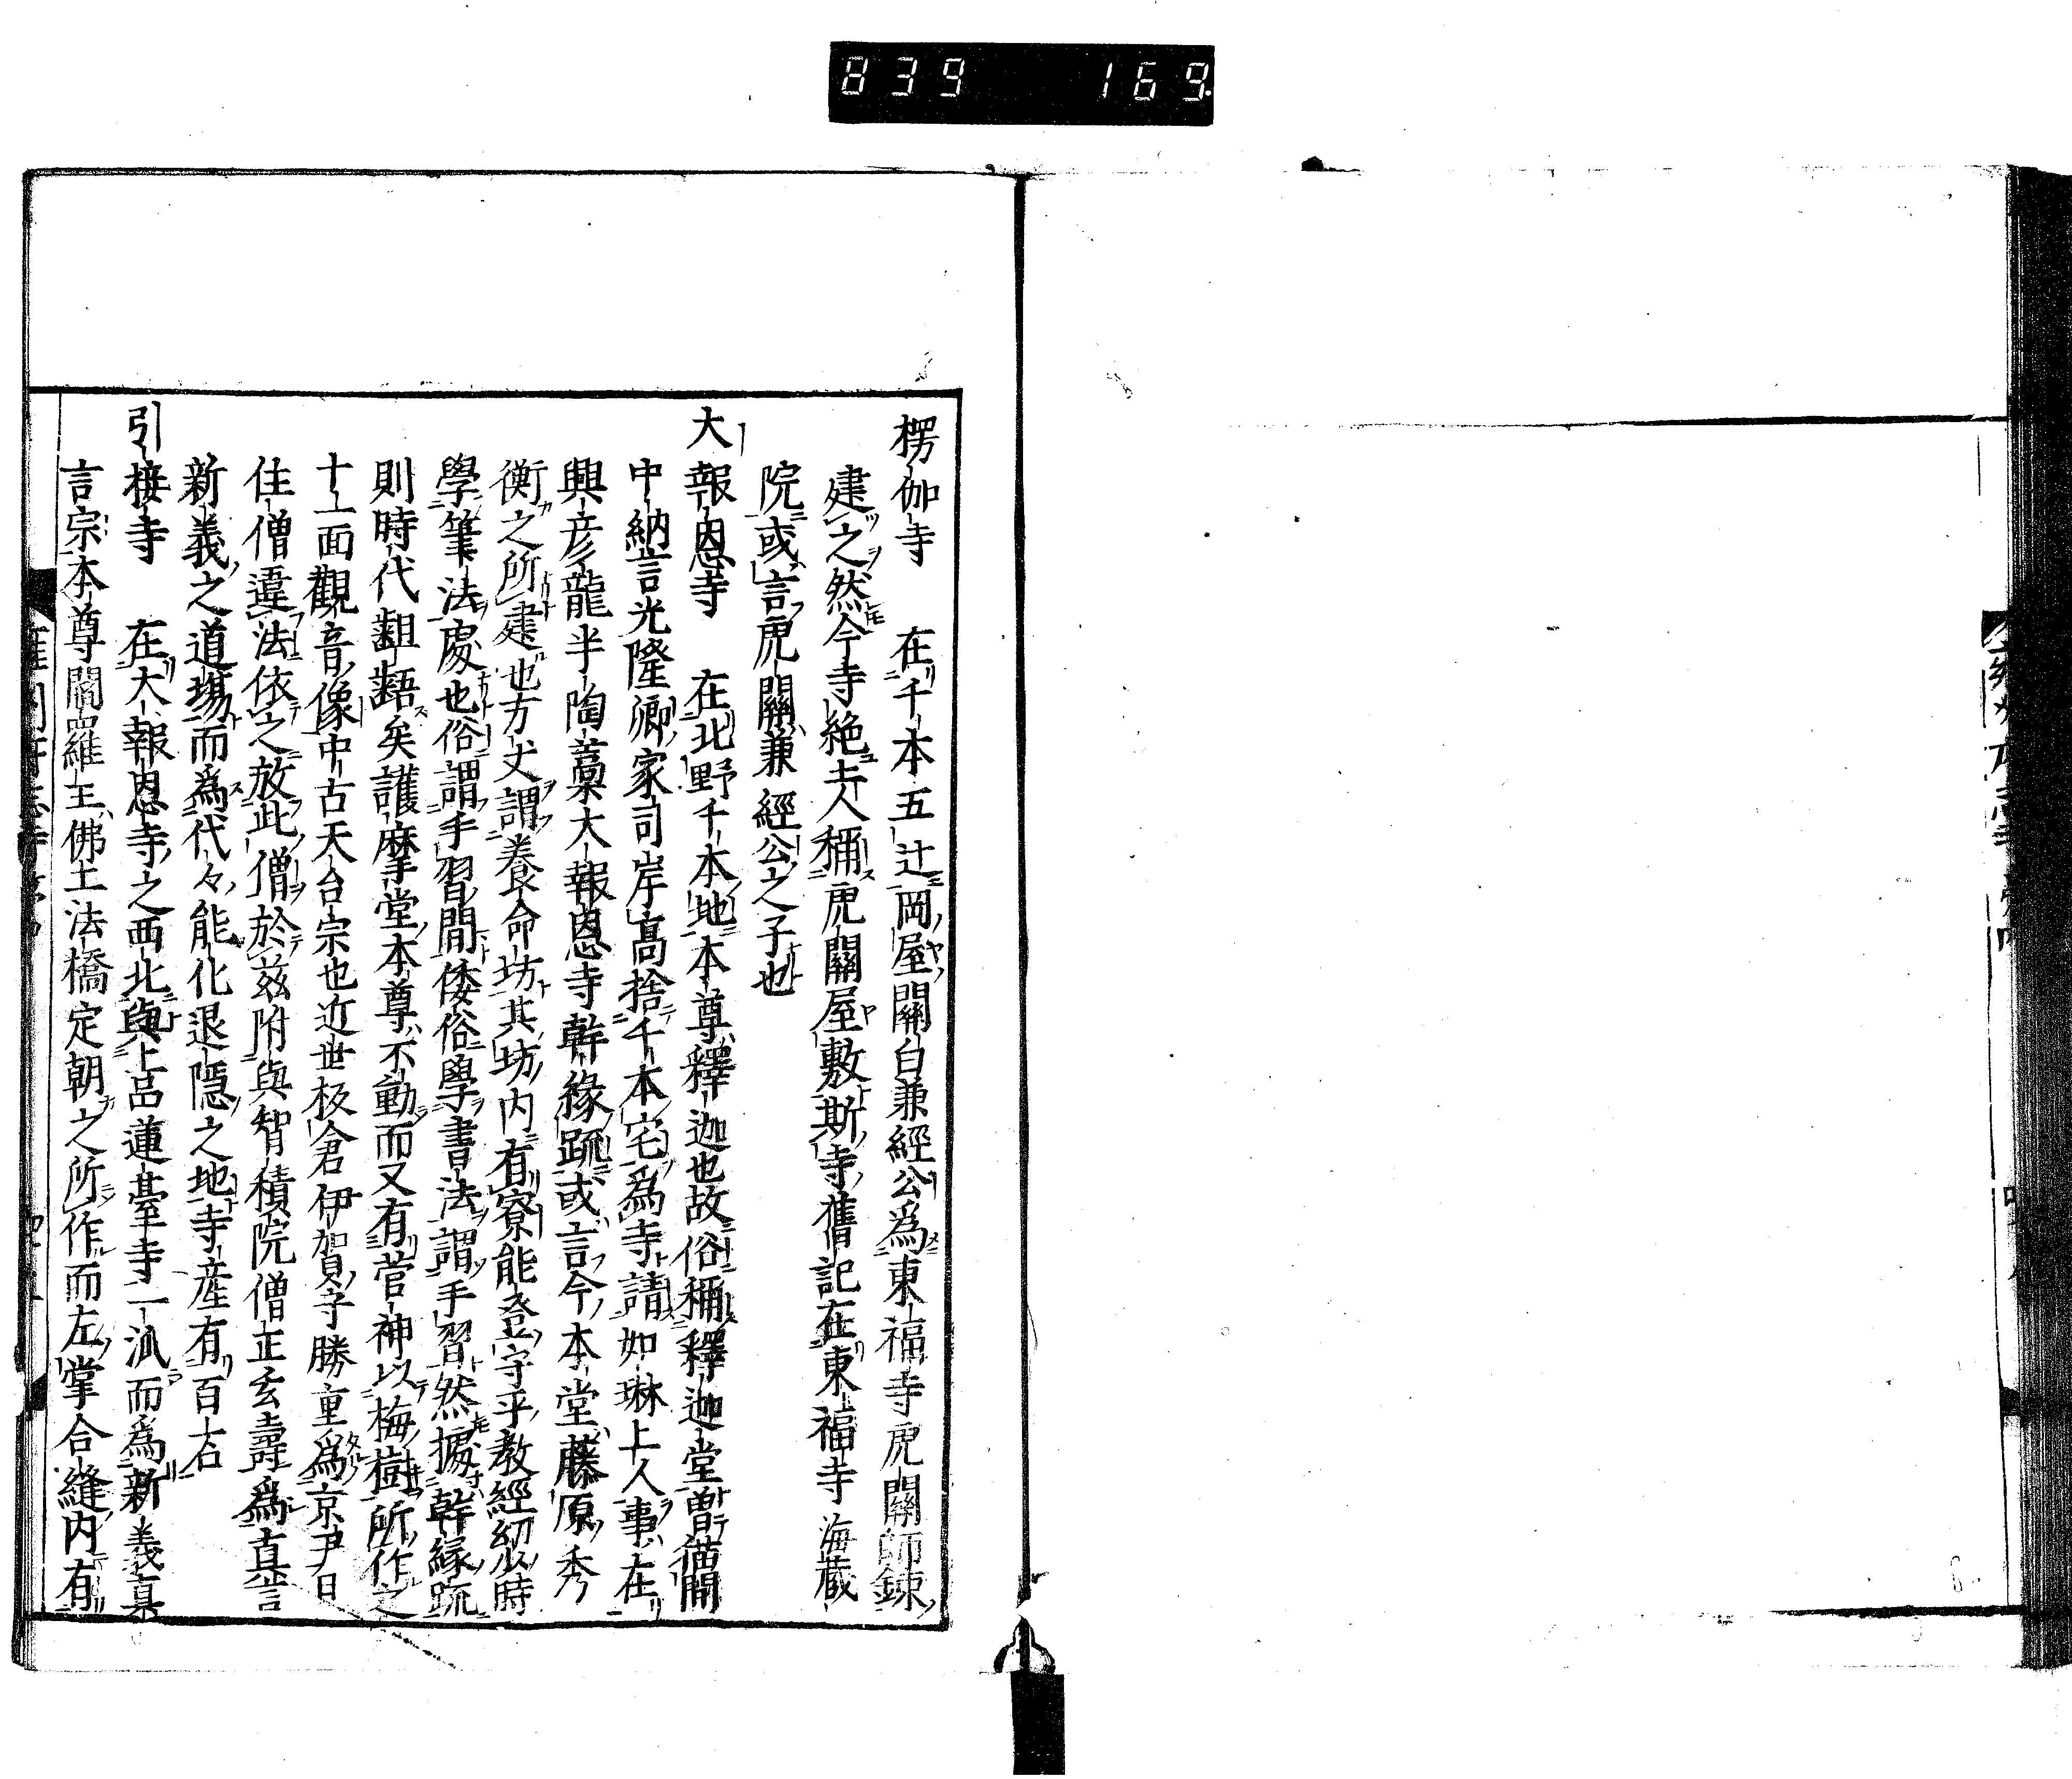 839 169
楞伽寺 在千本五辻岡屋關白兼經公爲東福寺虎關師錬
建之然今寺絶土人稱虎關屋敷斯寺舊記在東福寺海蔵
院或言虎關兼經公之子也
大報恩寺 在北野千本地本尊釋迦也故俗稱釋迦堂曽猫間
中納言光隆卿家司岸高捨千本宅爲寺請如琳上人事在
興彦龍半陶藁大報恩寺幹縁疏或言今本堂藤原秀
衡之所建也方丈謂養命坊其坊内有寮能登守乎教經幼時
學筆法處也俗謂手習間倭俗學書法謂手習然據幹縁疏
則時代齟齬矣護摩堂本尊不動而又有菅神以梅樹所作之
十一面觀音像中古天台宗也近世板倉伊賀守勝重爲京尹日
住僧違法依之放此僧於茲附與智積院僧正玄壽爲真言
新義之道場而爲代々能化退隱之地寺産有百石
引接寺 在大報恩寺之西北與上品蓮臺寺一派而爲新義真
言宗本尊閻羅王佛工法橋定朝之所作而左掌合縫内有